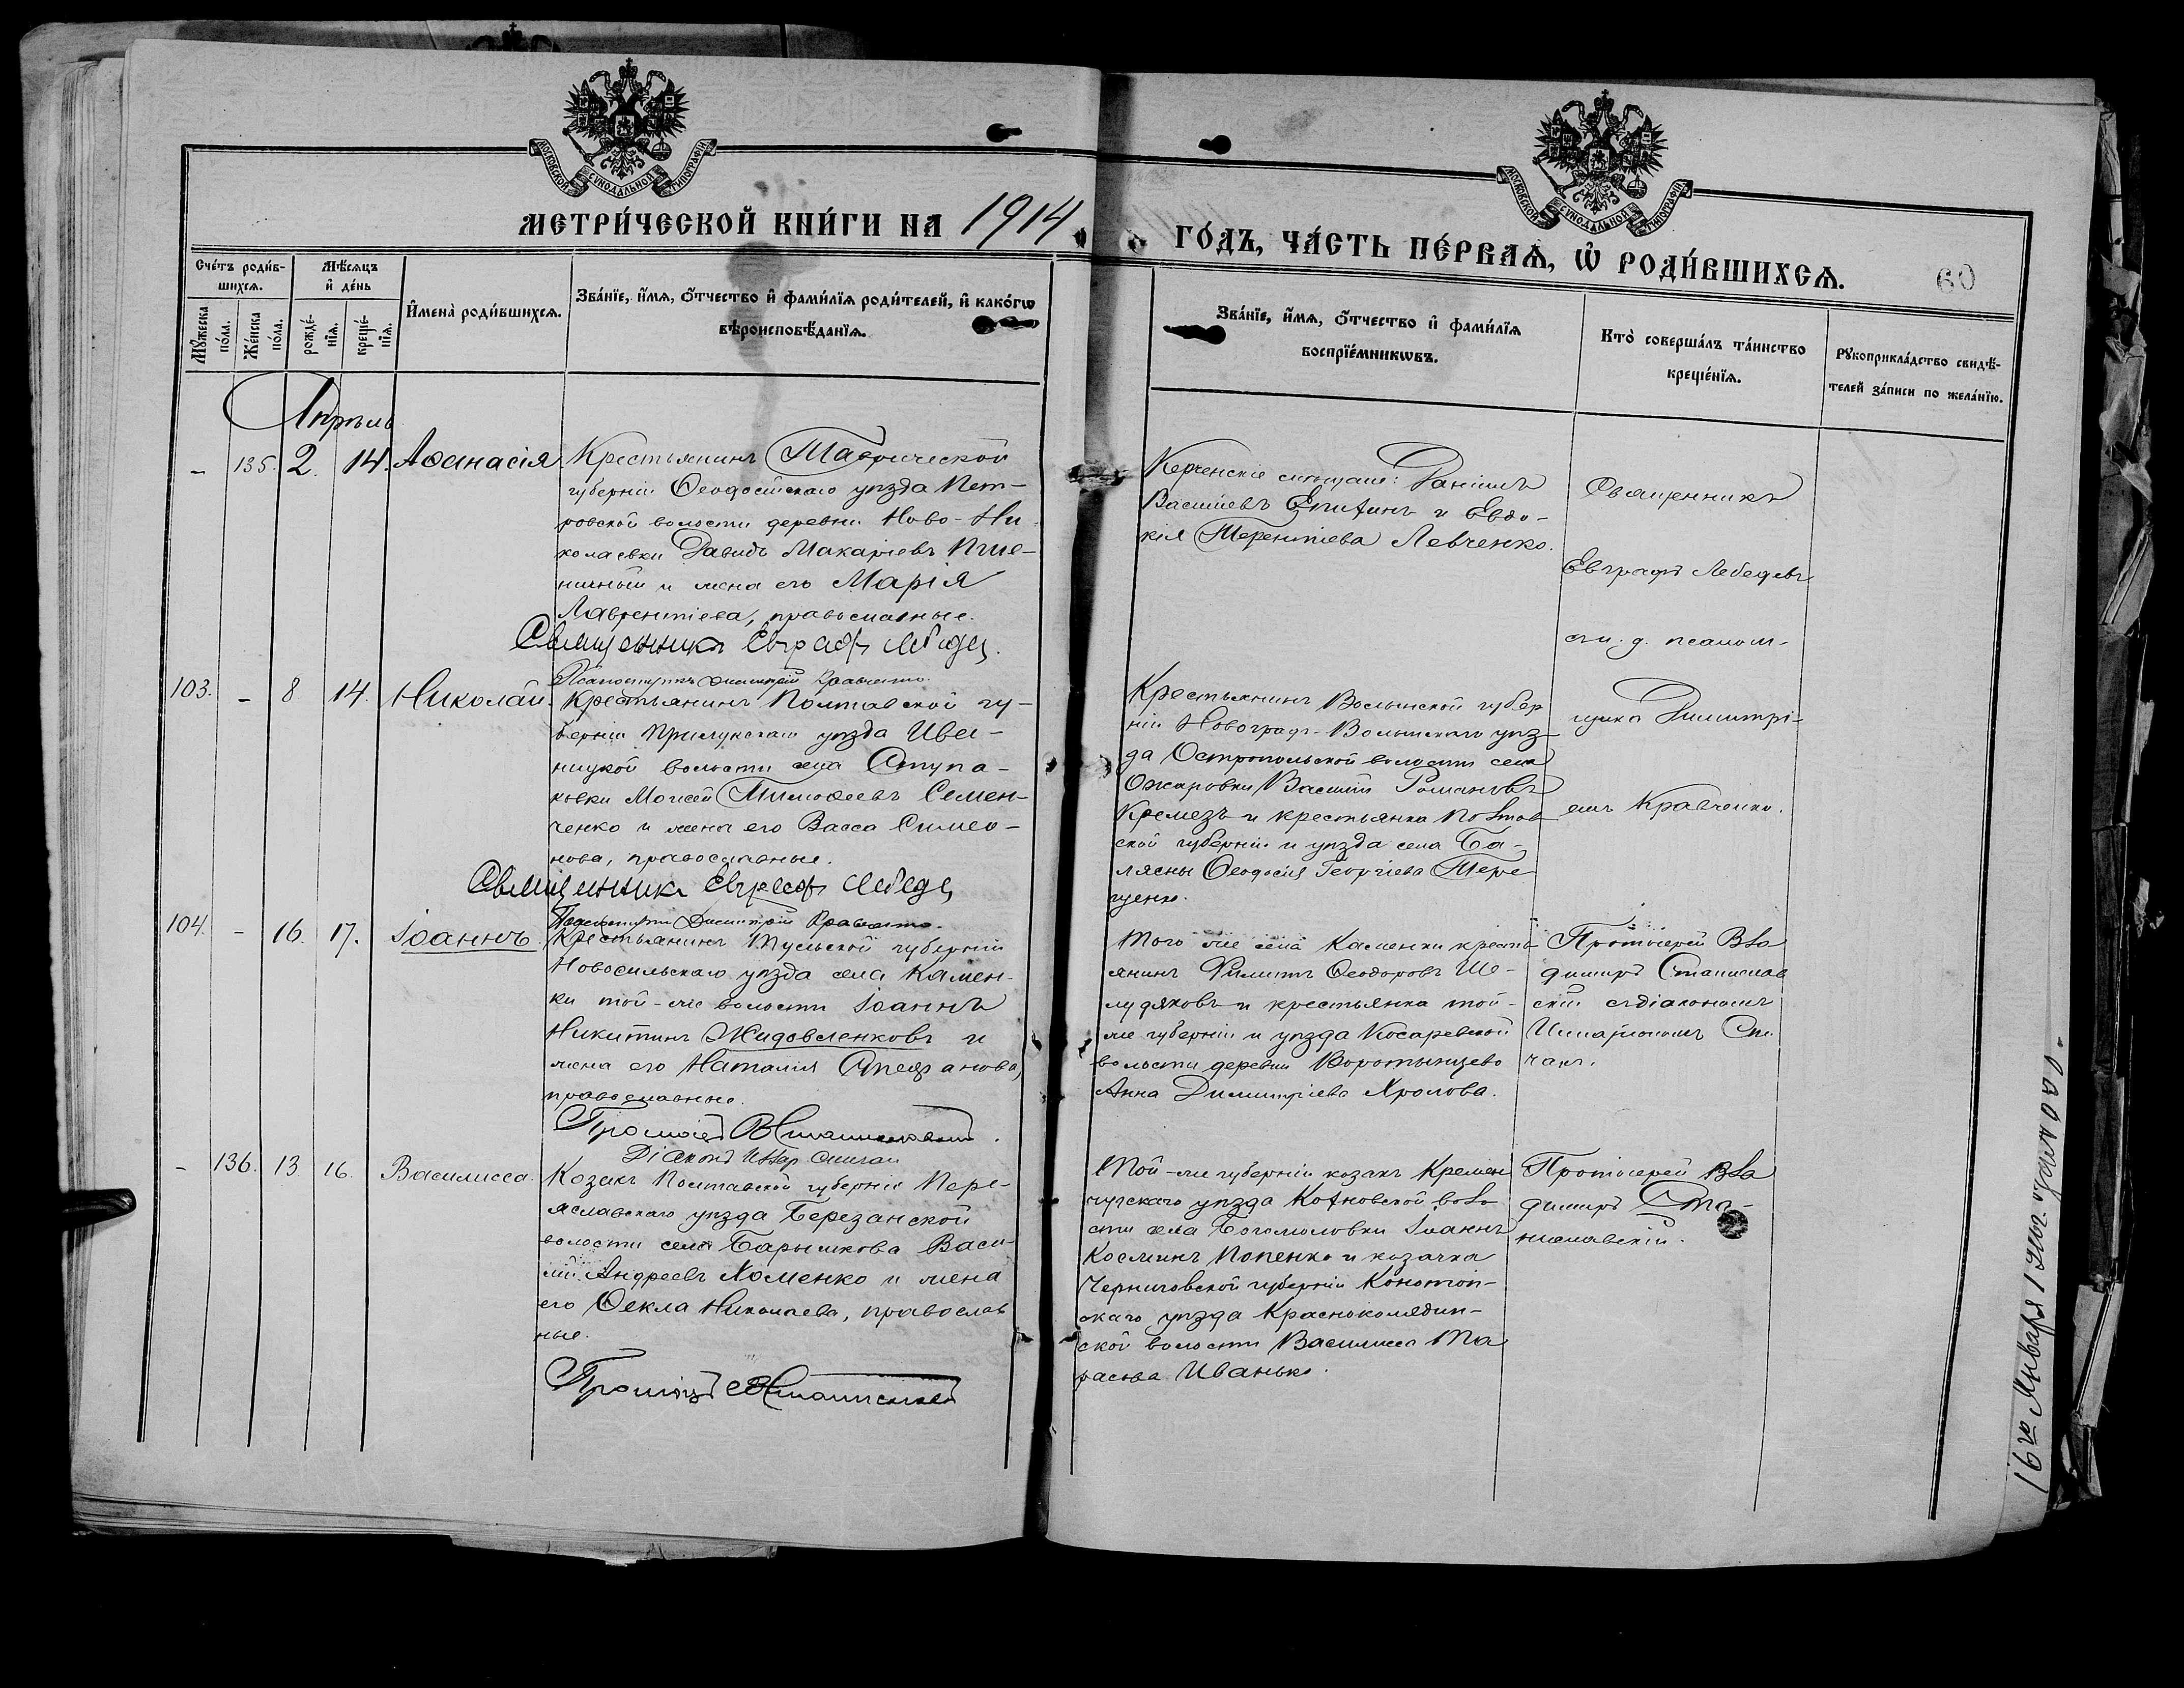 МОСКОВСКОЙ СУНОДАЛЬНОЙ ТИПОГРАФІИ
МОСКОВСКОЙ СУНОДАЛЬНОЙ ТИПОГРАФІИ
МЕТРИ́ЧЕСКОЙ КНИ́ГИ НА 1914
ГО́ДЪ, ЧА́СТЬ ПЕ́РВАѦ, Ѡ҆ РОДИ́ВШИХСѦ.
60
Сче́тъ роди́в-
шихсѧ.
Мѣ́сѧцъ
и҆ де́нь
Мꙋ́жеска
по́ла.
Же́нска
по́ла.
рожде́-
нїѧ.
креще́-
нїѧ.
И҆мена̀ роди́вшихсѧ.
Зва́нїе, и҆́мѧ, ѻ҆́тчество и҆ фами́лїѧ роди́телей, и҆ како́гѡ
вѣроисповѣ́данїѧ.
Зва́нїе, и҆́мѧ, ѻ҆́тчество и҆ фами́лїѧ
воспрїе́мникѡвъ.
Кто̀ соверша́лъ та́инство
креще́нїѧ.
Рꙋкоприкла́дство свидѣ́-
телей за́писи по жела́нїю.
Апрѣль
– 135. 2. 14. Аѳанасія
Крестьянинъ Таврической
губерніи Ѳеодосійскаго уѣзда Пет-
ровской волости деревни Ново-Ни-
колаевки Давидъ Макаріевъ Пше-
ничный и жена его Марія
Лаврентіева, православные.
Священникъ Евграфъ Лебедев
Псаломщикъ Димитрій Кравченко
Керченскіе мѣщане: Даніилъ
Василіевъ Епифинъ и Евдо-
кія Терентіева Левченко.
Священникъ
Евграфъ Лебедевъ
съ и. д. псалом-
щика Димитрі-
емъ Кравченко.
103. – 8 14. Николай.
Крестьянинъ Полтавской гу-
берніи Прилукскаго уѣзда Ива-
ницкой волости села Ступа-
ковки Моисей Тимоѳеевъ Семен-
ченко и жена его Васса Симео-
нова, православные.
Священникъ Евграфъ Лебедев
Псаломщикъ Димитрій Кравченко.
Крестьянинъ Волынской губер
ніи Новоградъ-Волынскаго уѣз-
да Остропольской волости села
Ожаровки Василій Романовъ
Кремезъ и крестьянка Полтав
ской губерніи и уѣзда села Ба-
лясны Ѳеодосія Георгіева Тере-
щенко.
104. – 16. 17. Іоаннъ.
Крестьянинъ Тульской губерніи
Новосильскаго уѣзда села Камен-
ки той-же волости Іоаннъ
Никитинъ Жидовленковъ и
жена его Наталія Стефанова,
православные.
Протоіерей В Станиславскій.
Діаконъ Илар Спичак
Того же села Каменки кресть
янинъ Филиппъ Ѳеодоровъ Ше-
лудяковъ и крестьянка той-
же губерніи и уѣзда Косаревской
волости деревни Воротынцево
Анна Димитріева Хролова.
Протоіерей Вла
димиръ Станислав
скій съ діакономъ
Иларіономъ Спи
чакъ.
– 136. 13 16. Василисса.
Козакъ Полтавской губерніи Пере-
яславскаго уѣзда Березанской
волости села Барышкова Васи-
лій Андреевъ Хоменко и жена
его Ѳекла Николаева, православ
ные.
Протоіерей В Станиславскій
Той-же губерніи козакъ Кремен
чугскаго уѣзда Кохновской воло
сти села Богомоловки Іоаннъ
Космикъ Попенко и козачка
Черниговской губерніи Конотоп-
скаго уѣзда Красноколядин-
ской волости Василисса Та
расова Иванько.
Протоіерей Вла
димиръ Ста-
ниславскій.
16го Января